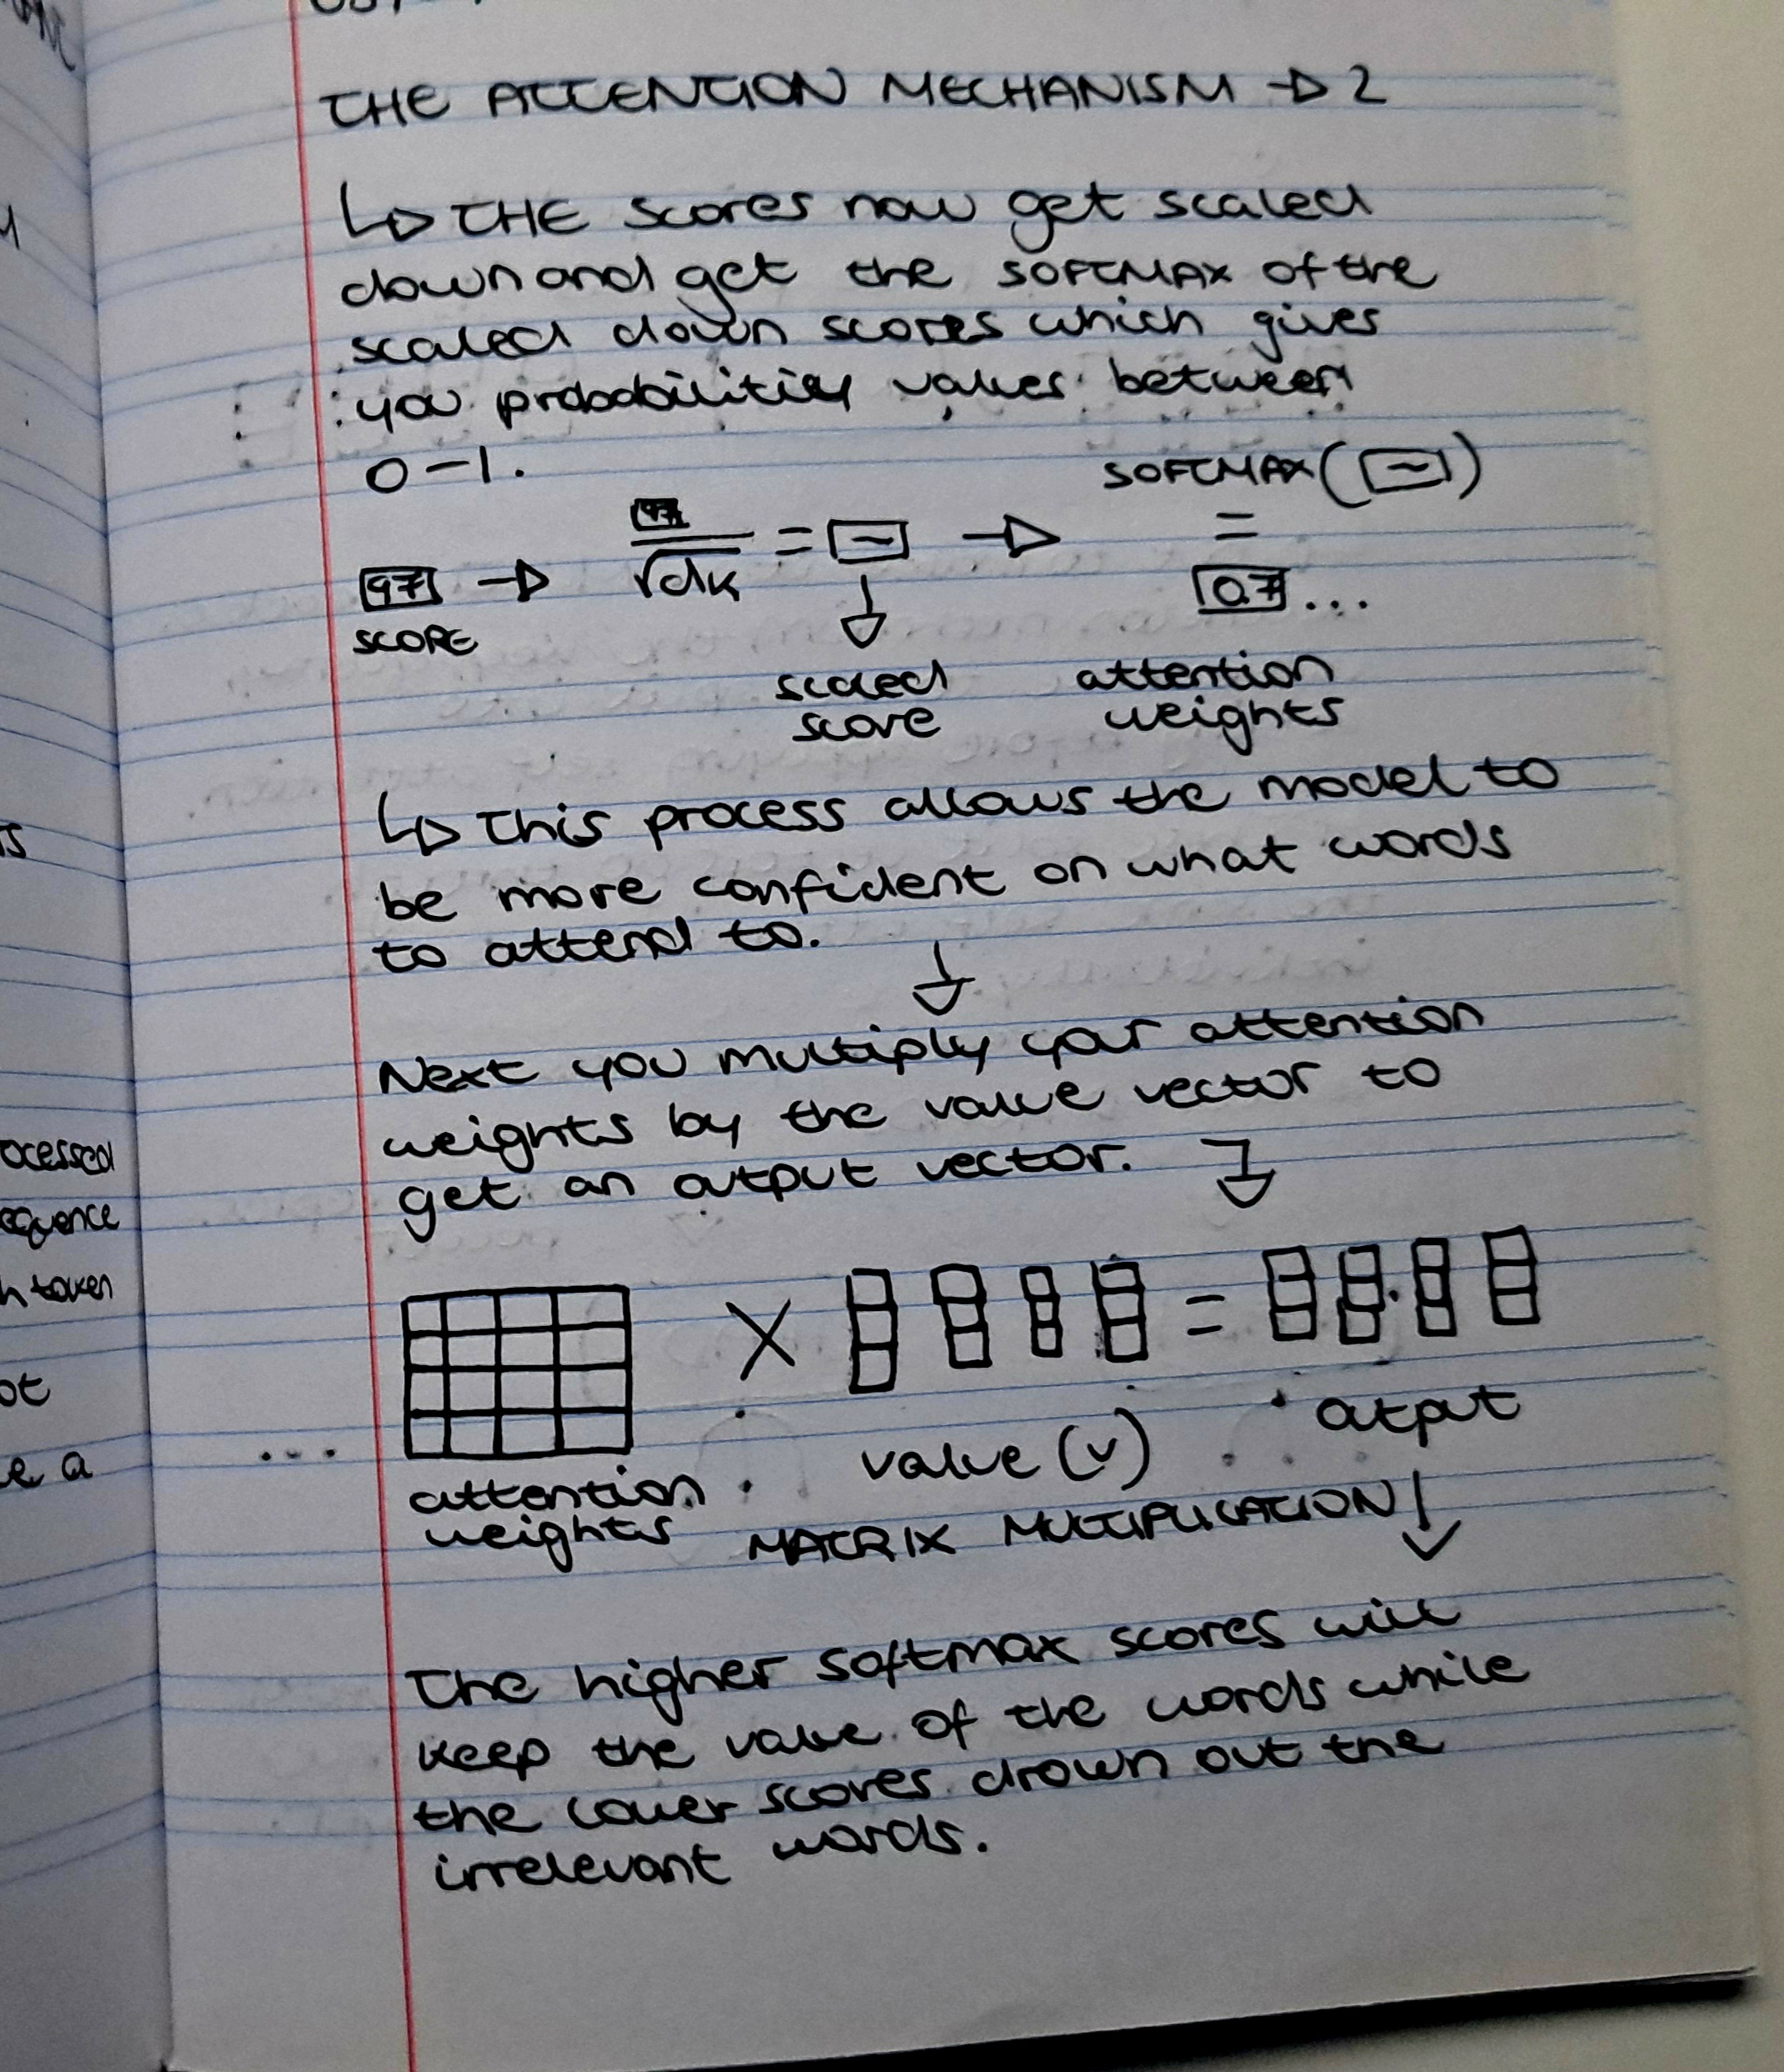 THE ATTENTION MECHANISM → 2
↳ THE scores now get scaled
down and get the SOFTMAX of the
scaled down scores which gives
you probabilities values between
0-1.
SOFTMAX(~)
97 → 97/√dk = ~ → =
0.7...
SCORE
scaled attention
score weights
↳ This process allows the model to
be more confident on what words
to attend to.
↓
Next you multiply your attention
weights by the value vector to
get an output vector. ↓
X =
output
value (v)
attention
weights MATRIX MULTIPLICATION ↓
The higher softmax scores will
keep the value of the words while
the lower scores drown out the
irrelevant words.
ocessed
equence
h token
ot
e a